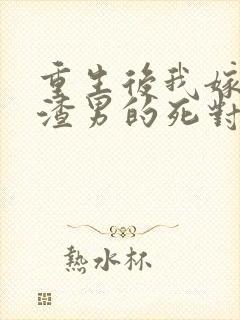 重生後我嫁
渣男的死對
熱水杯